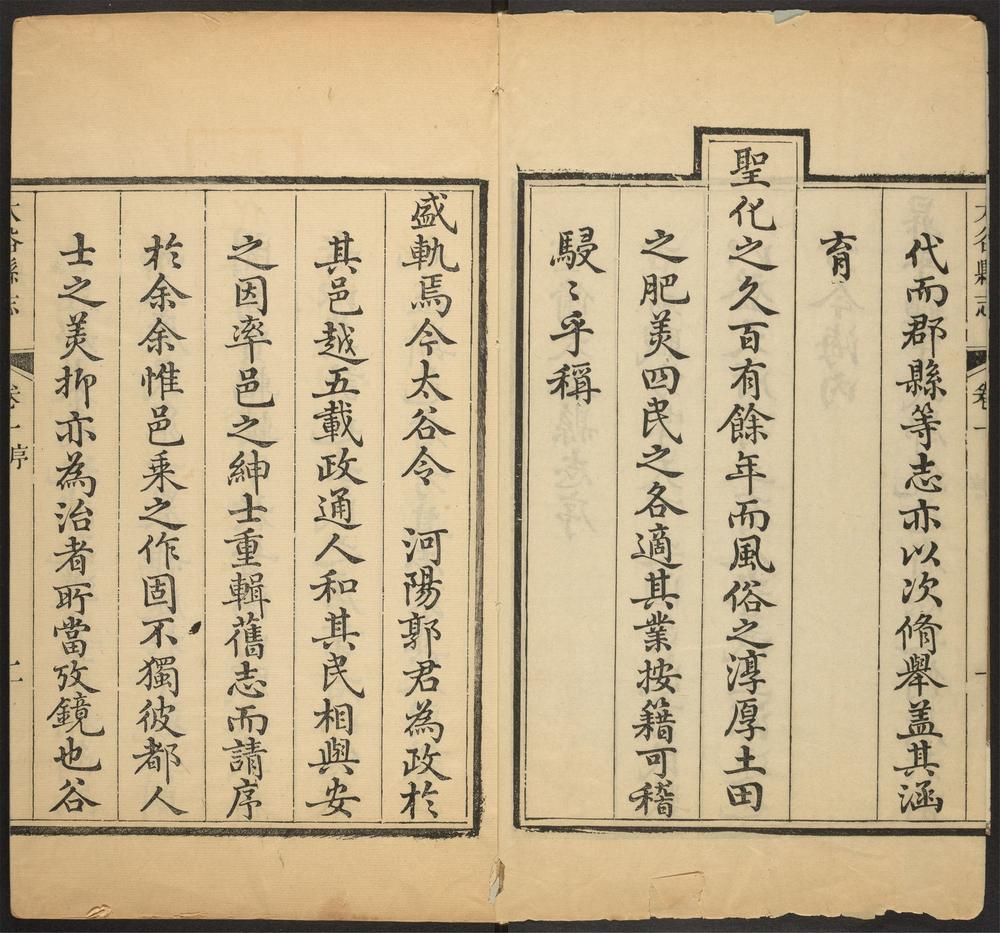 太谷縣志 卷一
代而郡縣等志亦以次脩舉盖其涵
育
聖化之久百有餘年而風俗之淳厚土田
之肥美四民之各適其業按籍可稽
駸〻乎稱
盛軌焉今太谷令 河陽郭君為政於
其邑越五載政通人和其民相與安
之因率邑之紳士重輯舊志而請序
於余余惟邑乘之作固不獨彼都人
士之美抑亦為治者所當攷鏡也谷
太谷縣志 卷一 序 二